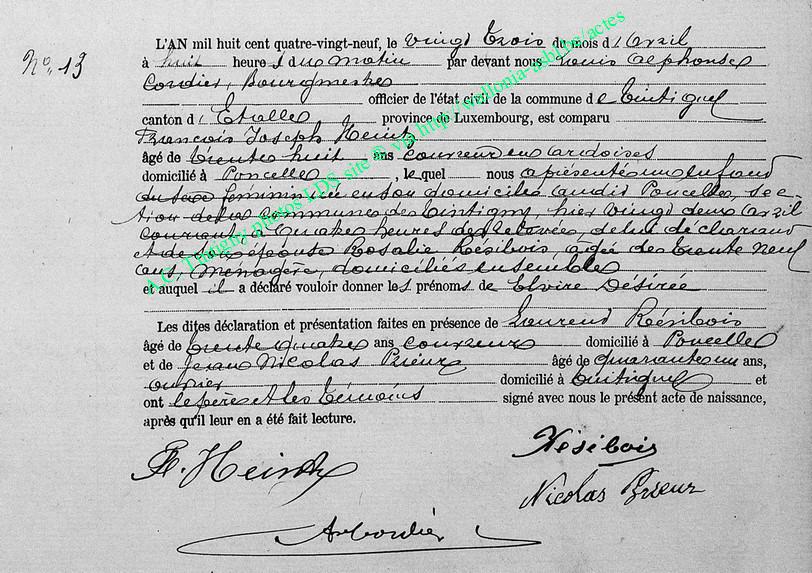 N° 13
L'AN mil huit cent quatre-vingt-neuf, le vingt trois du mois d'Avril
à huit heures du matin par devant nous Louis Alphonse
Cordier, Bourgmestre
officier de l'état civil de la commune de Tintigny
canton d'Etalle province de Luxembourg, est comparu
François Joseph Heintz
âgé de trente huit ans couvreur en ardoises
domicilié à Poncelle, lequel nous a présenté un enfant
du sexe féminin, né en son domicile audit Poncelle, sec-
tion de la commune de Tintigny, hier vingt deux Avril
courant, à quatre heures de relevée, de lui déclarant
et de son épouse Rosalie Résibois, agée de trente neuf
ans, Ménagère, domiciliés ensemble
et auquel il a déclaré vouloir donner les prénoms de Elvire Désirée
Les dites déclaration et présentation faites en présence de Laurent Résibois
âgé de trente quatre ans couvreur domicilié à Poncelle
et de Jean Nicolas Prieur âgé de quarante un ans,
ouvrier domicilié à Tintigny et
ont le père et les témoins signé avec nous le présent acte de naissance,
après qu'il leur en a été fait lecture.
Heintz
Résibois
Nicolas Prieur
ACordier
A.C. Tintigny photos LDS site © via http://wallonia-asbl.be/actes